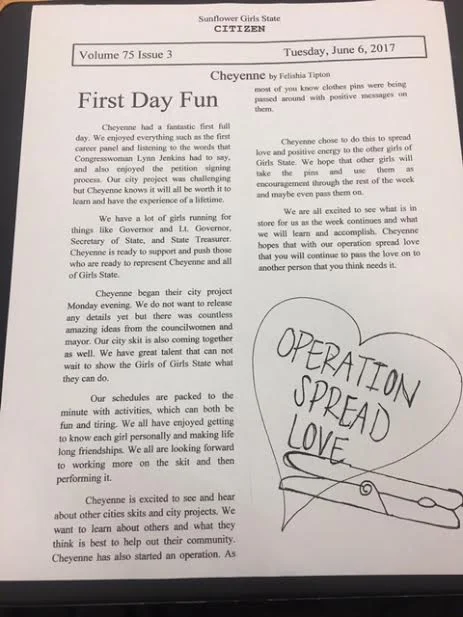 Sunflower Girls State
CITIZEN
Volume 75 Issue 3
Tuesday, June 6, 2017
Cheyenne by Felishia Tipton
First Day Fun
Cheyenne had a fantastic first full
day. We enjoyed everything such as the first
career panel and listening to the words that
Congresswoman Lynn Jenkins had to say,
and also enjoyed the petition signing
process. Our city project was challenging
but Cheyenne knows it will all be worth it to
learn and have the experience of a lifetime.
We have a lot of girls running for
things like Governor and Lt. Governor,
Secretary of State, and State Treasurer.
Cheyenne is ready to support and push those
who are ready to represent Cheyenne and all
of Girls State.
Cheyenne began their city project
Monday evening. We do not want to release
any details yet but there was countless
amazing ideas from the councilwomen and
mayor. Our city skit is also coming together
as well. We have great talent that can not
wait to show the Girls of Girls State what
they can do.
Our schedules are packed to the
minute with activities, which can both be
fun and tiring. We all have enjoyed getting
to know each girl personally and making life
long friendships. We all are looking forward
to working more on the skit and then
performing it.
Cheyenne is excited to see and hear
about other cities skits and city projects. We
want to learn about others and what they
think is best to help out their community.
Cheyenne has also started an operation. As
most of you know clothes pins were being
passed around with positive messages on
them.
Cheyenne chose to do this to spread
love and positive energy to the other girls of
Girls State. We hope that other girls will
take the pins and use them as
encouragement through the rest of the week
and maybe even pass them on.
We are all excited to see what is in
store for us as the week continues and what
we will learn and accomplish. Cheyenne
hopes that with our operation spread love
that you will continue to pass the love on to
another person that you think needs it.
OPERATION
SPREAD
LOVE